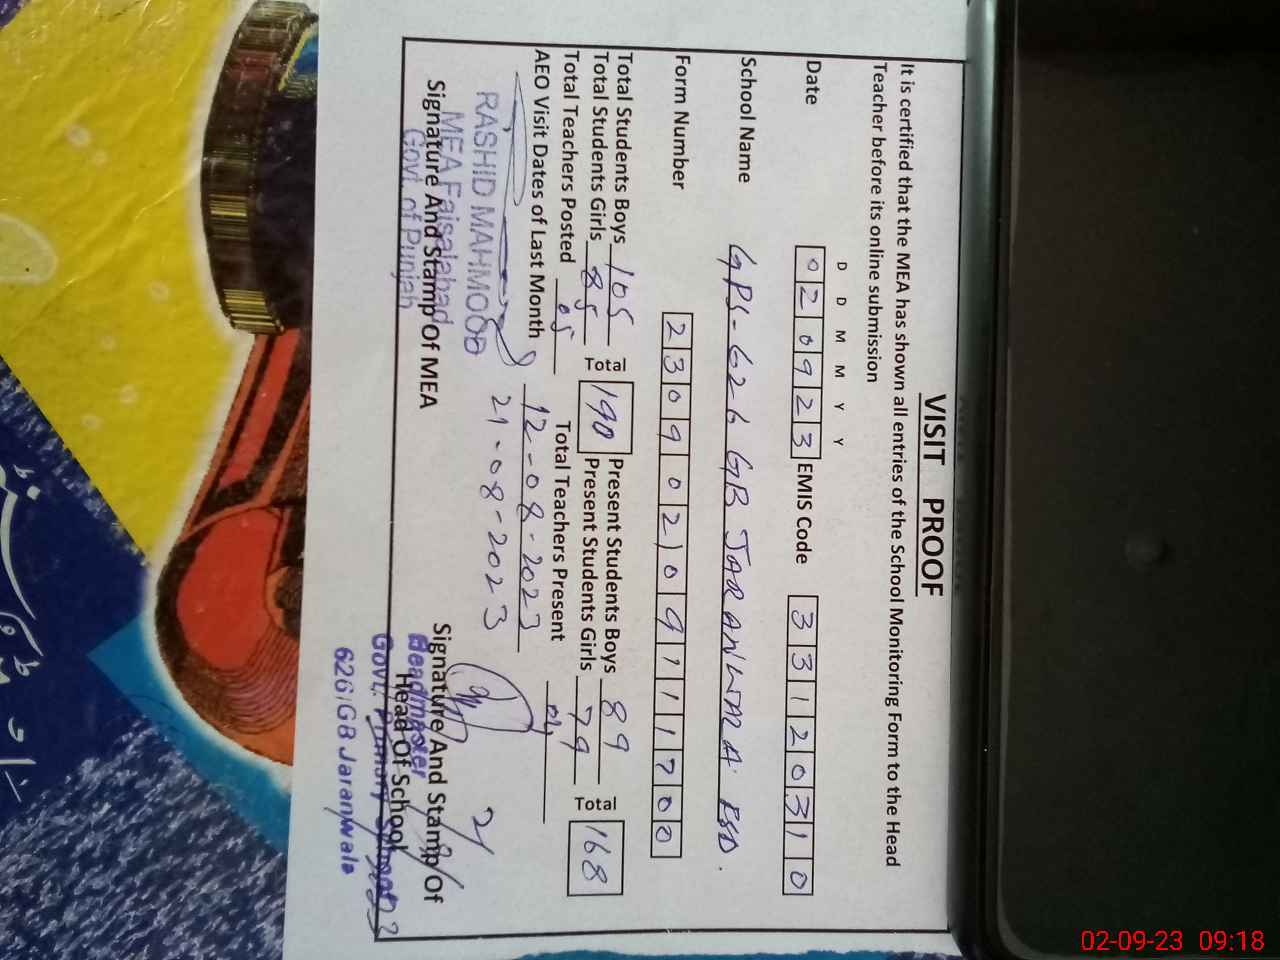 VISIT PROOF
It is certified that the MEA has shown all entries of the School Monitoring Form to the Head
Teacher before its online submission
D D M M Y Y
Date 0 2 0 9 2 3 EMIS Code 3 3 1 2 0 3 1 0
School Name GPS-626 GB JARANWALA FSD.
Form Number 2 3 0 9 0 2 1 0 9 1 1 1 7 0 0
Total Students Boys 105 Total 190 Present Students Boys 89 Total 168
Total Students Girls 85 Present Students Girls 79
Total Teachers Posted 05 Total Teachers Present 04
AEO Visit Dates of Last Month 12-08-2023
21-08-2023
RASHID MAHMOOD
MEA Faisalabad
Govt. of Punjab
Signature And Stamp Of MEA
Signature And Stamp Of
Head Of School
Headmaster
Govt. Primary School
626/GB Jaranwala
02-09-23 09:18